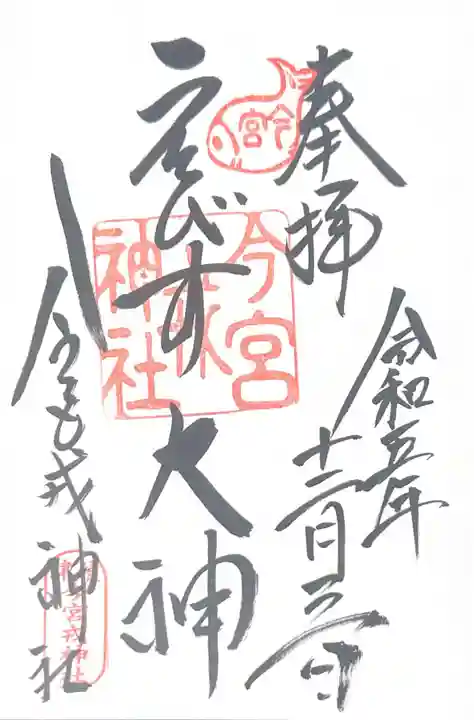 奉拝
令和五年
十二月
今宮
ゑびす大神
今宮
神社
今宮戎神社
宮戎神社